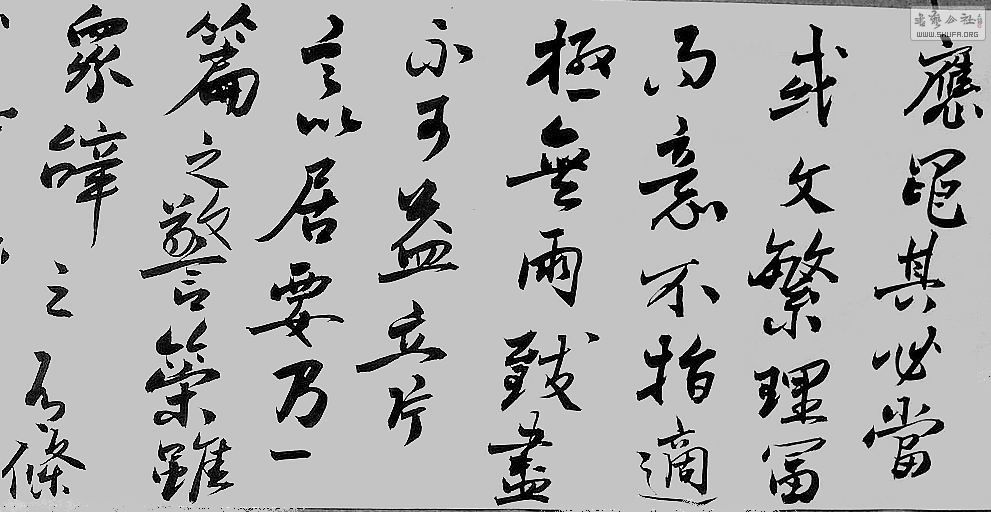 應繩其必當
或文繁理富
而意不指適
極無兩致盡
不可益立片
言以居要乃一
篇之警策雖
眾辭之有條
書藝公社
WWW.SHUFA.ORG